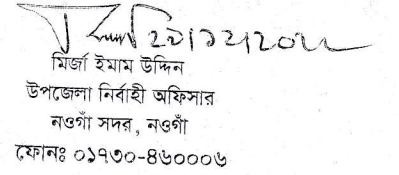 মির্জা ইমাম উদ্দিন
উপজেলা নির্বাহী অফিসার
নওগাঁ সদর, নওগাঁ
ফোনঃ ০১৭৩০-৪৬০০০৬